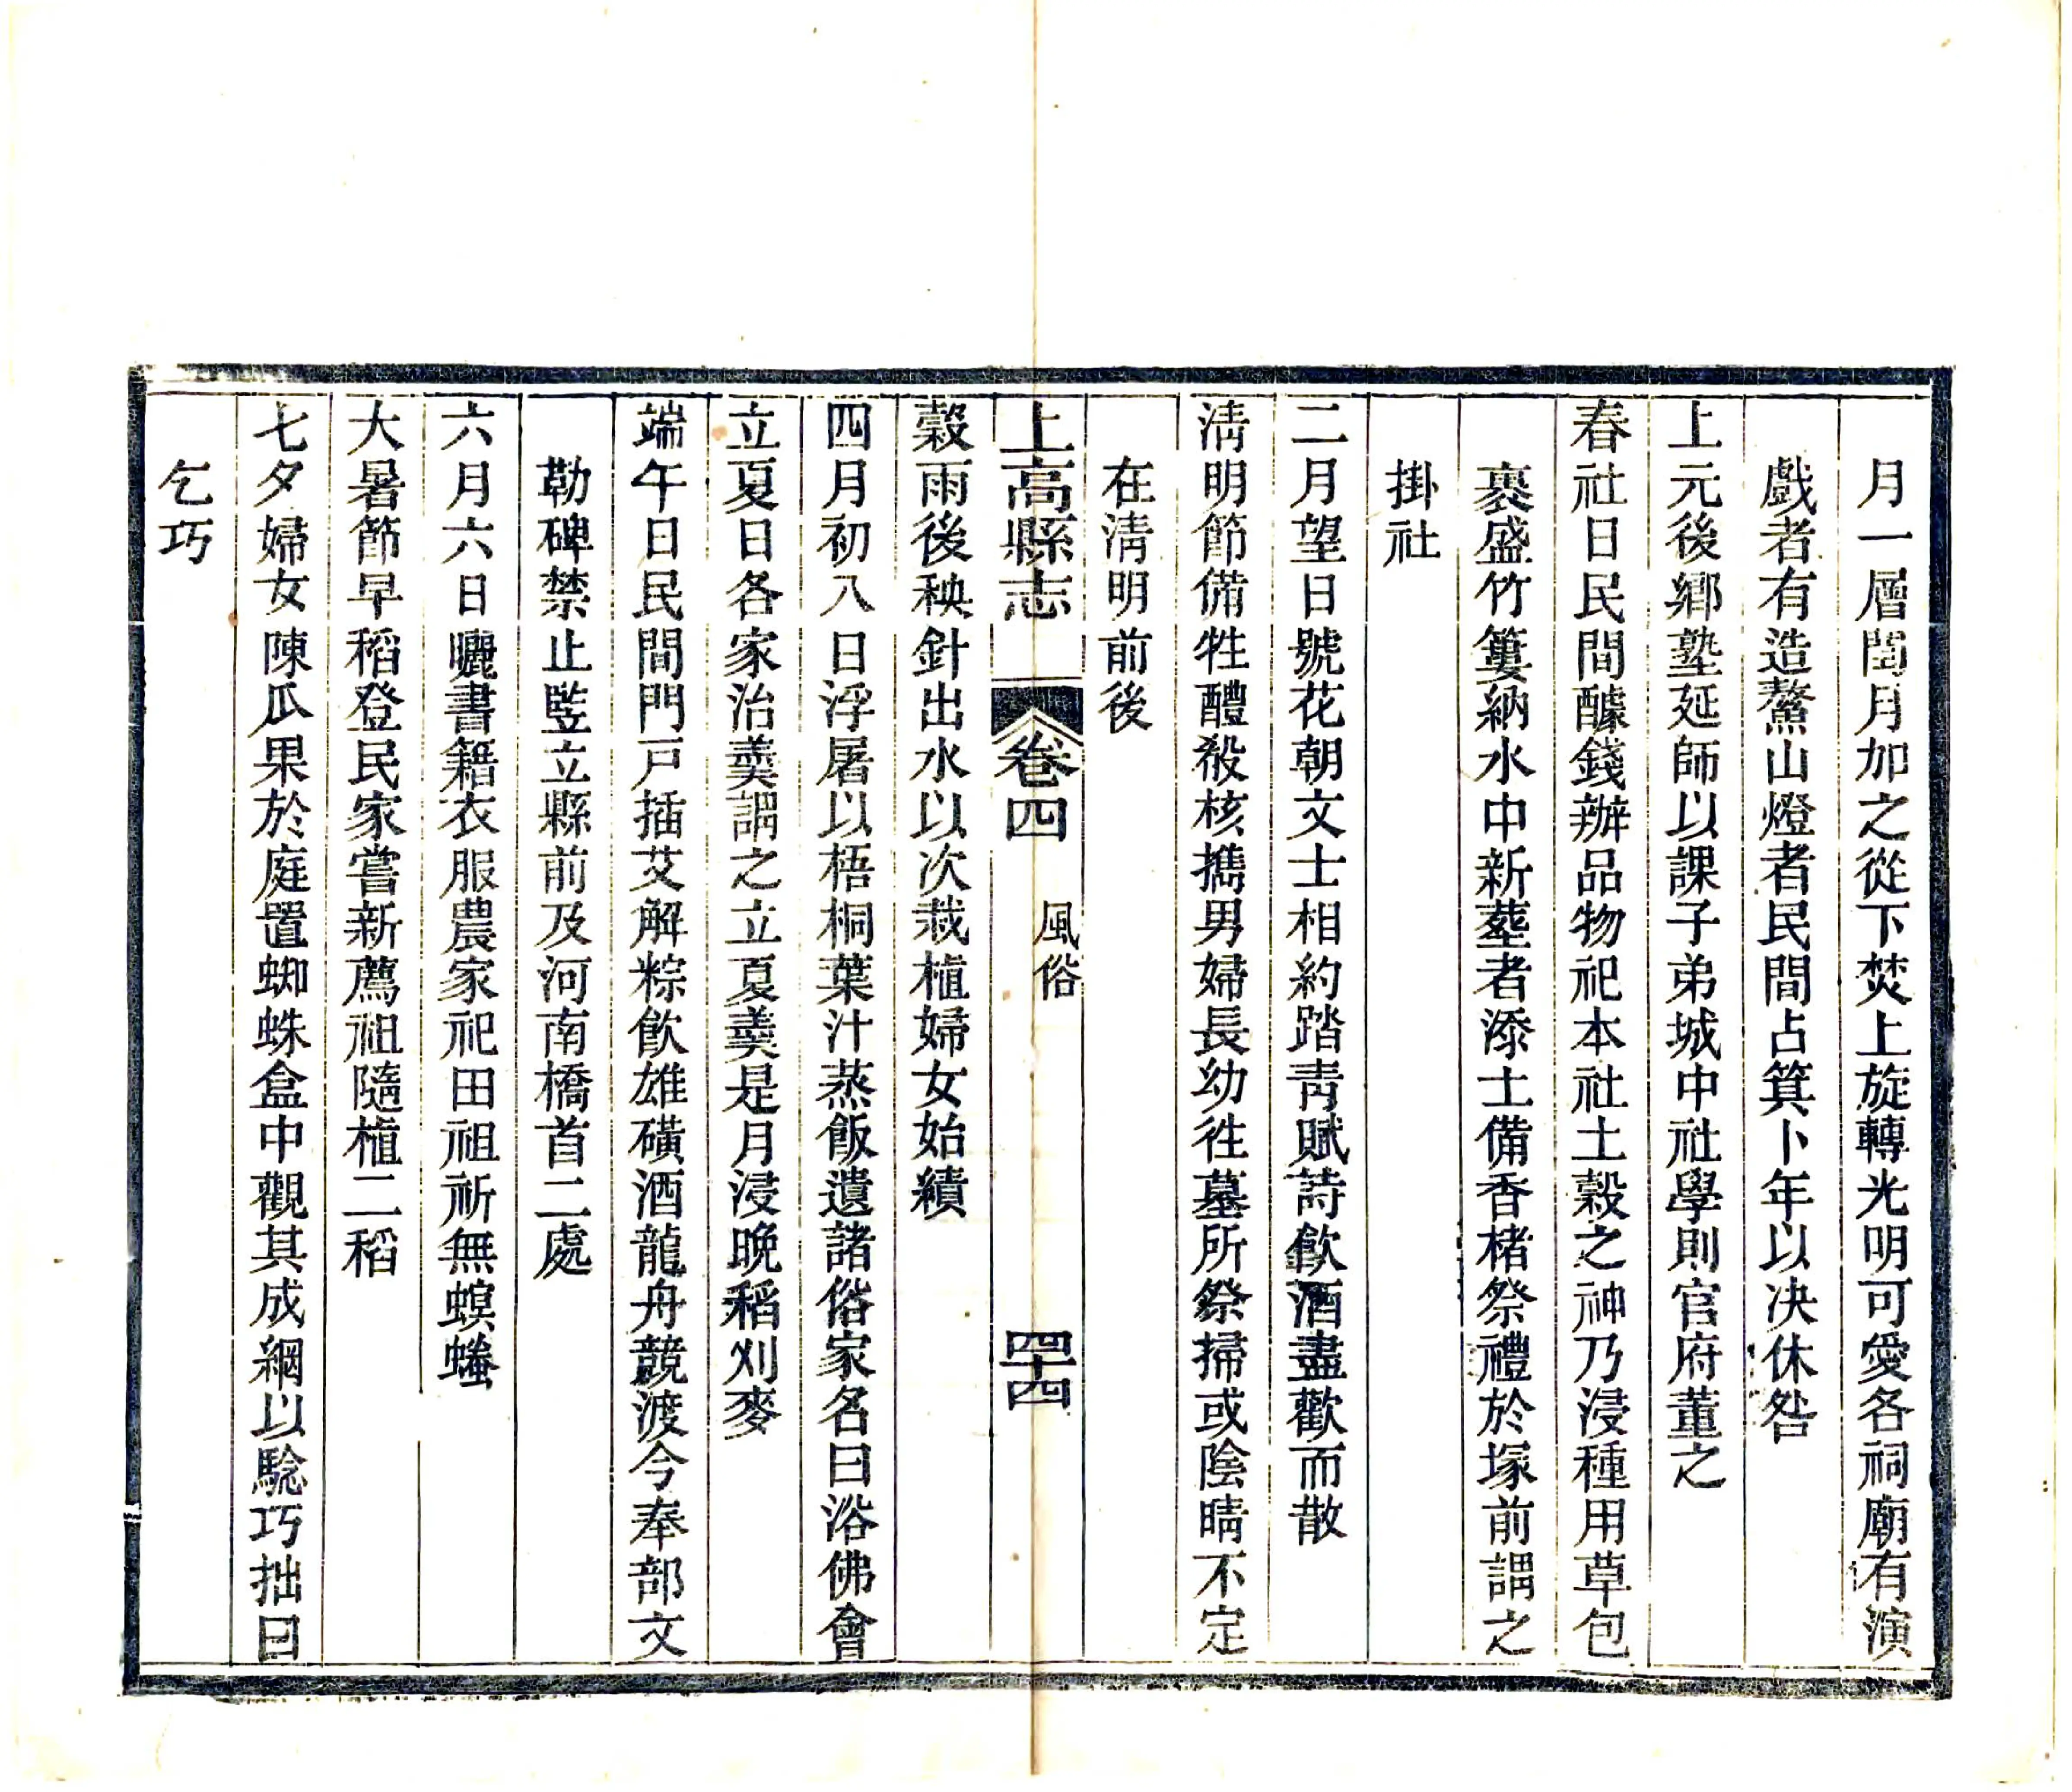 月一層閏月加之從下焚上旋轉光明可愛各祠廟有演
戲者有造鰲山燈者民間占箕卜年以决休咎
上元後鄉塾延師以課子弟城中社學則官府董之
春社日民間醵錢辦品物祀本社土穀之神乃浸種用草包
裹盛竹簍納水中新塟者添土備香楮祭禮於塚前謂之
掛社
二月望日號花朝文士相約踏靑賦詩飮酒盡歡而散
淸明節備牲醴殽核攜男婦長幼徃墓所祭掃或陰晴不定
在淸明前後
上高縣志 卷四 風俗 四十四
穀雨後秧針出水以次栽植婦女始績
四月初八日浮屠以梧桐葉汁蒸飯遺諸俗家名曰浴佛會
立夏日各家治羹謂之立夏羹是月浸晚稻刈麥
端午日民間門戸插艾解粽飮雄磺酒龍舟競渡今奉部文
勒碑禁止監立縣前及河南橋首二處
六月六日曬書籍衣服農家祀田祖祈無螟螣
大暑節早稻登民家嘗新薦祖隨植二稻
七夕婦女陳瓜果於庭置蜘蛛盒中觀其成網以騐巧拙曰
乞巧